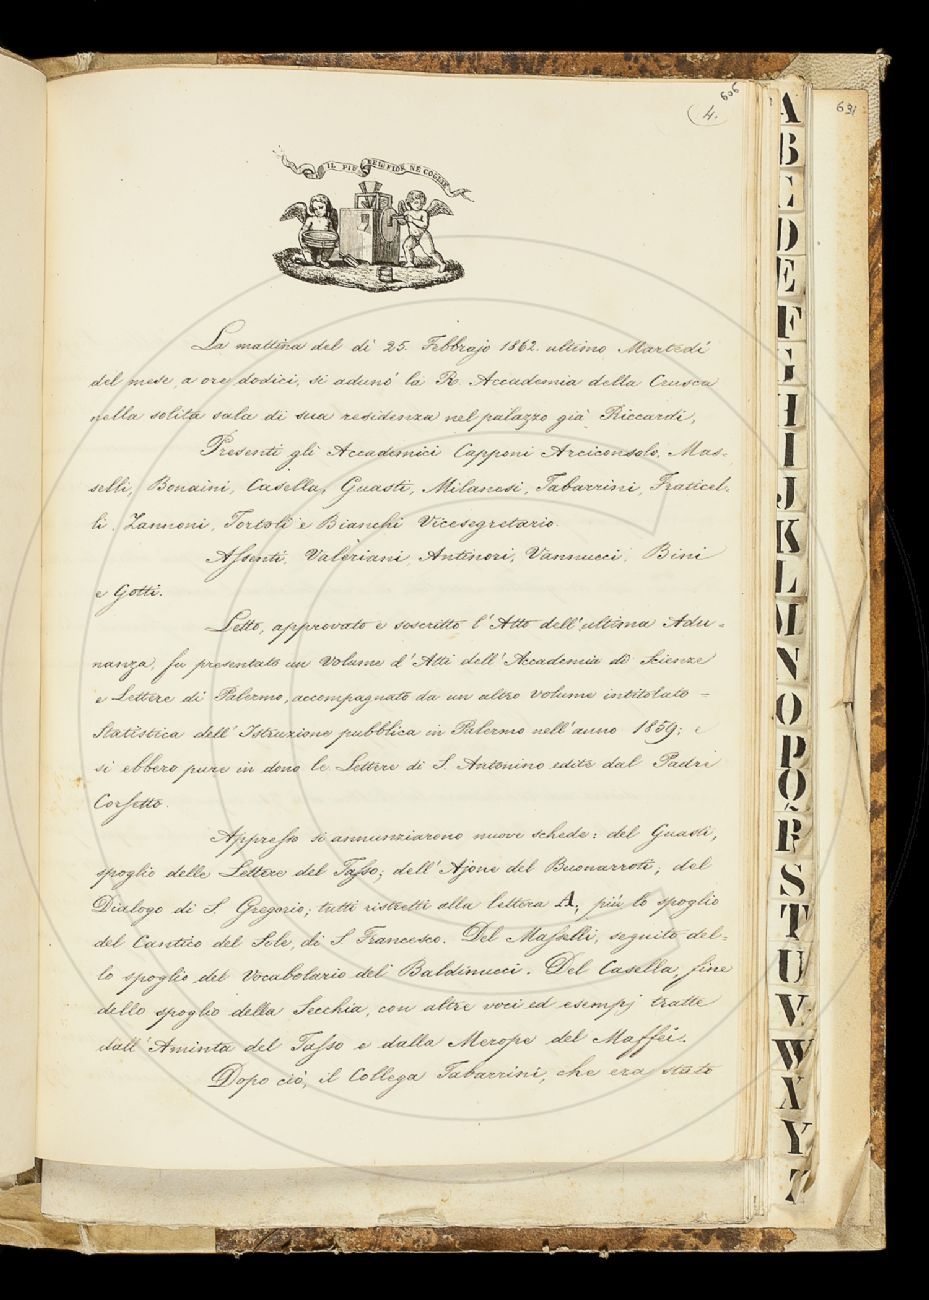 606
(4.
631
IL PIÙ BEL FIOR NE COGLIE
La mattina del dì 25. Febbrajo 1862. ultimo Martedì
del mese, a ore dodici, si adunò la R. Accademia della Crusca
nella solita sala di sua residenza nel palazzo già Riccardi,
Presenti gli Accademici Capponi Arciconsolo, Mas-
selli, Bonaini, Casella, Guasti, Milanesi, Tabarrini, Fraticel-
li, Zannoni, Tortoli e Bianchi Vicesegretario.
Assenti, Valeriani, Antinori, Vannucci, Bini
e Gotti.
Letto, approvato e soscritto l'Atto dell'ultima Adu-
nanza, fu presentato un Volume d'Atti dell'Accademia di Scienze
e Lettere di Palermo, accompagnato da un altro volume intitolato =
Statistica dell'Istruzione pubblica in Palermo nell'anno 1859; e
si ebbero pure in dono le Lettere di S. Antonino edite dal Padre
Corsetto.
Appresso si annunziarono nuove schede: del Guasti,
spoglio delle Lettere del Tasso; dell'Ajone del Buonarroti; del
Dialogo di S. Gregorio; tutti ristretti alla lettera A; più lo spoglio
del Cantico del Sole, di S. Francesco. Del Masselli, seguito del-
lo spoglio del Vocabolario del Baldinucci. Del Casella, fine
dello spoglio della Secchia, con altre voci ed esempj tratte
dall'Aminta del Tasso e dalla Merope del Maffei.
Dopo ciò, il Collega Tabarrini, che era stato
A
B
C
D
E
F
G
H
I
J
K
L
M
N
O
P
Q
R
S
T
U
V
W
X
Y
Z